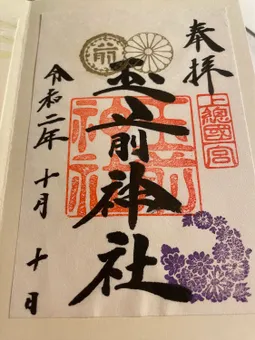 奉拝
上總國一宮
前
玉前神社
玉前
神社
令和二年十月十日